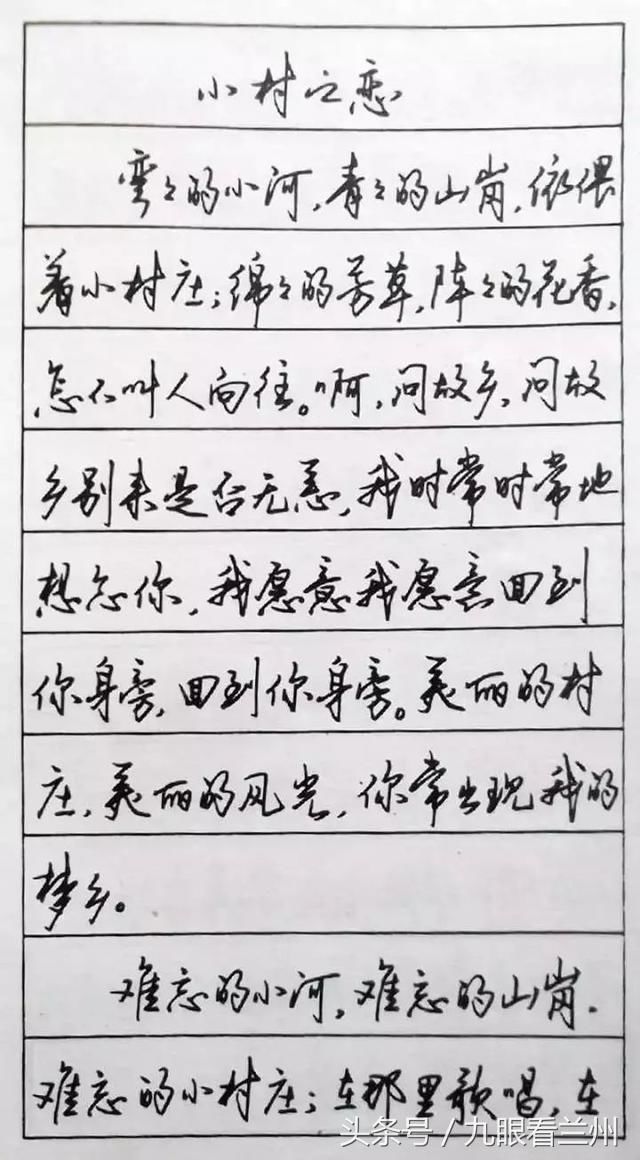 小村之恋
弯々的小河,青々的山岗,依偎
着小村庄;绵々的芳草,阵々的花香,
怎不叫人向往。啊,问故乡,问故
乡别来是否无恙,我时常时常地
想念你,我愿意我愿意回到
你身旁,回到你身旁。美丽的村
庄,美丽的风光,你常出现我的
梦乡。
难忘的小河,难忘的山岗.
难忘的小村庄;在那里歌唱,在
头条号/九眼看兰州